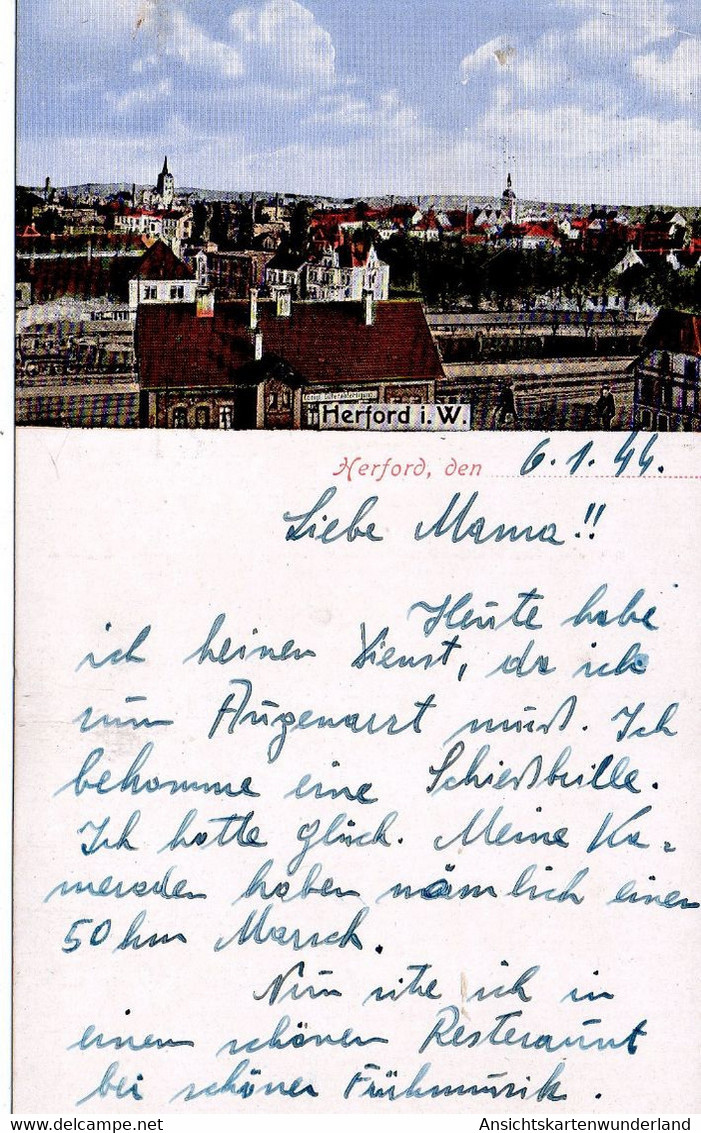 Königl. Güterabfertigung
Herford i. W.
Herford, den 6.1.44.
Liebe Mama!!
Heute habe
ich keinen Dienst, da ich
zum Augenarzt muß. Ich
bekomme eine Schießbrille.
Ich hatte Glück. Meine Ka=
meraden haben nämlich einen
50 km Marsch.
Nun sitze ich in
einem schönen Resteraunt
bei schöner Frühmusik.
Ansichtskartenwunderland